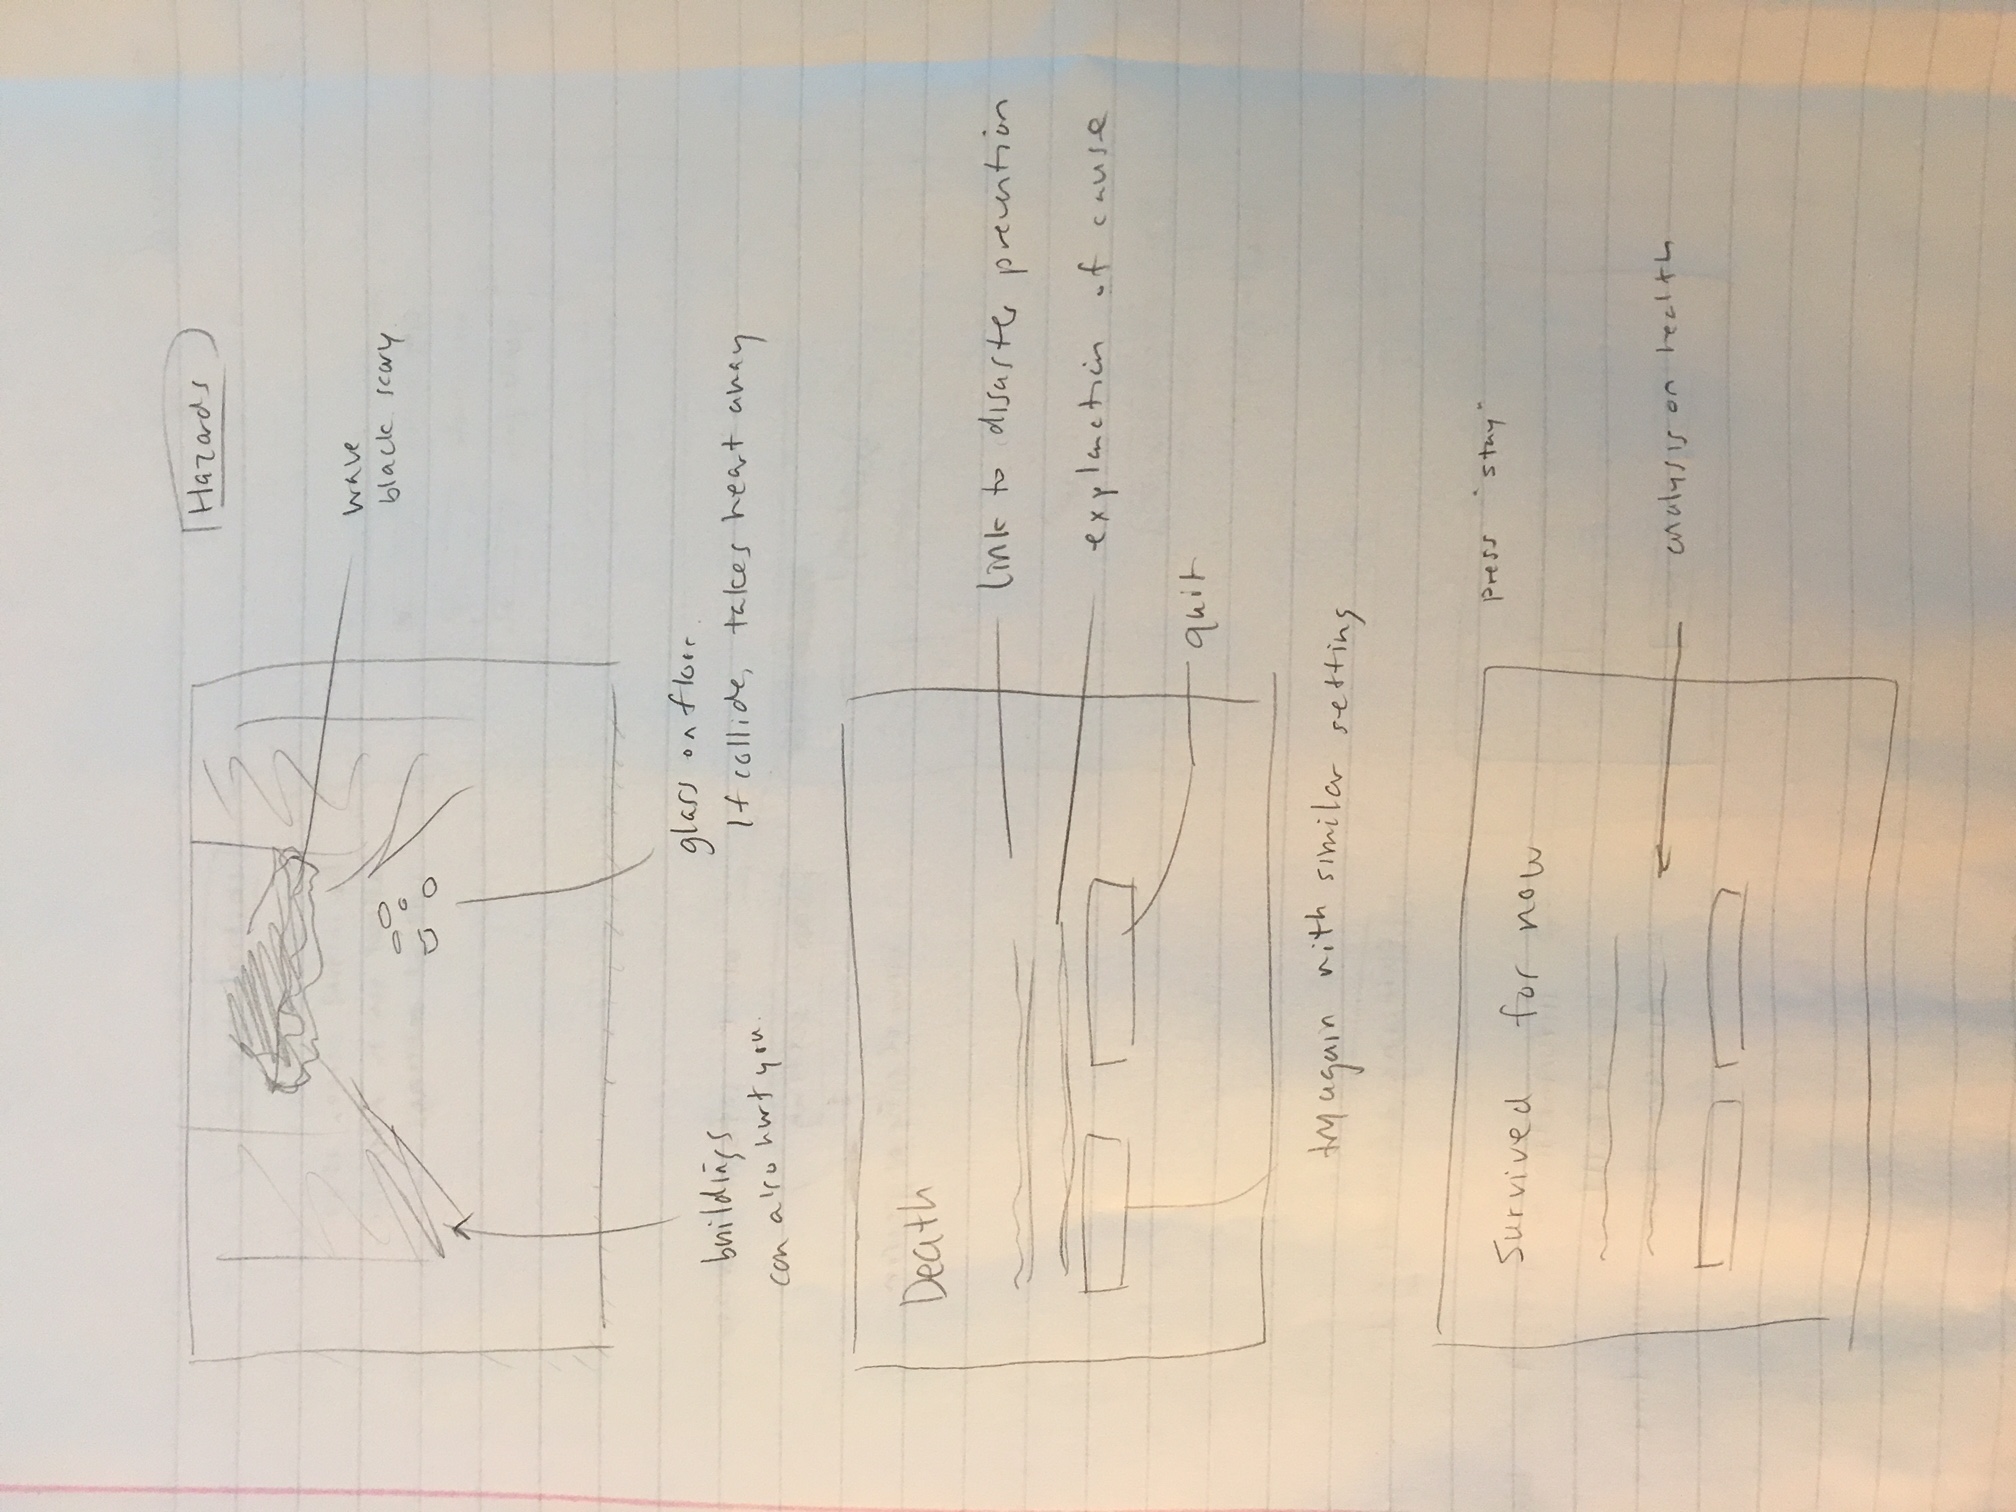 Hazards
wave
black scary
buildings
can also hurt you.
glass on floor.
If collide, takes heart away
Death
link to disaster prevention
explanation of cause
quit
try again with similar setting
Survived for now
press "stay"
analysis on health